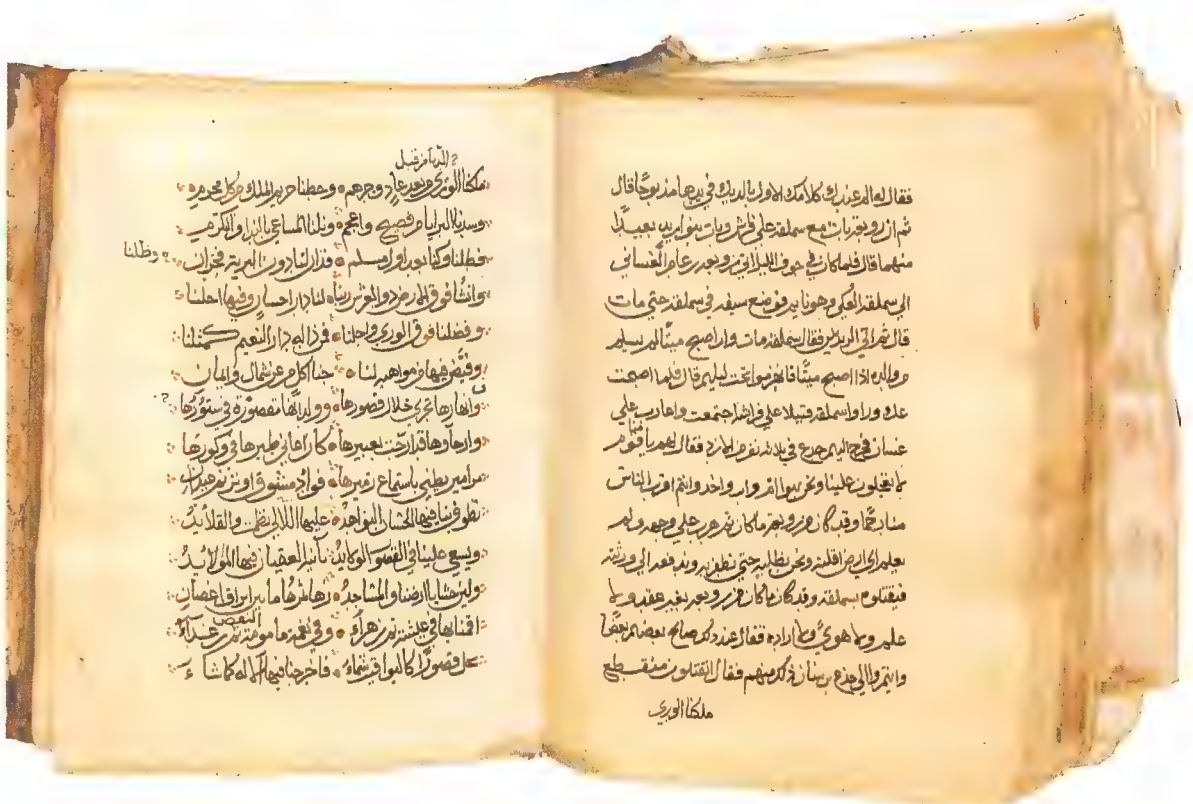 فقال له الم عندك كلامك الاول بالديك في بيها مذبوحا قال
ثم ان رويعة بات مع سملقة على فراش وبات بنوا ابيه بعيدا
منهما قال فلما كان في جوف الليل اتى رويعة بن عامر الغساني
الى سملقة العكي وهو نايم فوضع سيفه في سملقة حتى مات
قال ثم اتى الى فقال سملقة مات وان اصبح ميتا لم يسلم
من والده اذا اصبح ميتا قال فلما اصبحت
عك وراوا سملقة قتيلا على فراشه اجتمعت واعادت على
غسان فخرج اليهم جذع في ثلاثة نفر من الازد فقال لهم يا قوم
لا تعجلون علينا ونحن بنوا اب واحد وانتم اقرب الناس
منا رحما وقد كان من رويعة ما كان ثم هرب على وجهه ولم
يعلم اي ارض اقلته ونحن نطلبه حتى نظفر به وندفعه الى ورثته
فيقتلوه بسملقة وقد كان ما كان من رويعة بغير عقد ولا
علم ولا هوى ولا اراده فقال عند ذلك صالح بعضهم بعضا
وانتمروا الى جذع بن سنان ذلك منهم فقال اتقتلون منقطع
ملكنا الوري
الدنيا من قبل
ملكنا الورى من بعد عاد وجرهم وحطنا حريم الملك من كل مجرم
وسدنا البرايا من فصيح واعجم ونلنا المساعي بالندا والتكرم
فطلنا وكنا بعد اول مسلم فذاك لنا دون البرية فخران
وظلنا
وانشا فوق الارض ذو العرش ربنا لنا دار احسان وفيها احلنا
وفضلنا فوق الورى واجلنا فمن ذا له دار النعيم كمثلنا
وقيض فيها من مواهبه لنا جنا كل من عن شمال وايمان
وانهارها تجري خلال قصورها وولدانها مقصورة في ستورها
وارجاوها قد ارجت بعبيرها كان اغاني طيرها في وكورها
مزامير يطبي باستماع زميرها فواد مشوق او ترنم عيدان
تطوف بنا فيها الحسان النواهد عليها اللالي نظمت والقلائد
ويسعى علينا في القصور الولائد بآنية العقيان فيها الموائد
ولين حشايا ارضنا والمشاجد زهاها ثمرها ما بين ايراق اغصان
اقمنا بها في عيشة ثم زهراء وفي نعمة مامونة ثم رغداء
النقص
نحل قصورا كاليواقيت شماء فاخرجنا فيها الاله كما شاء